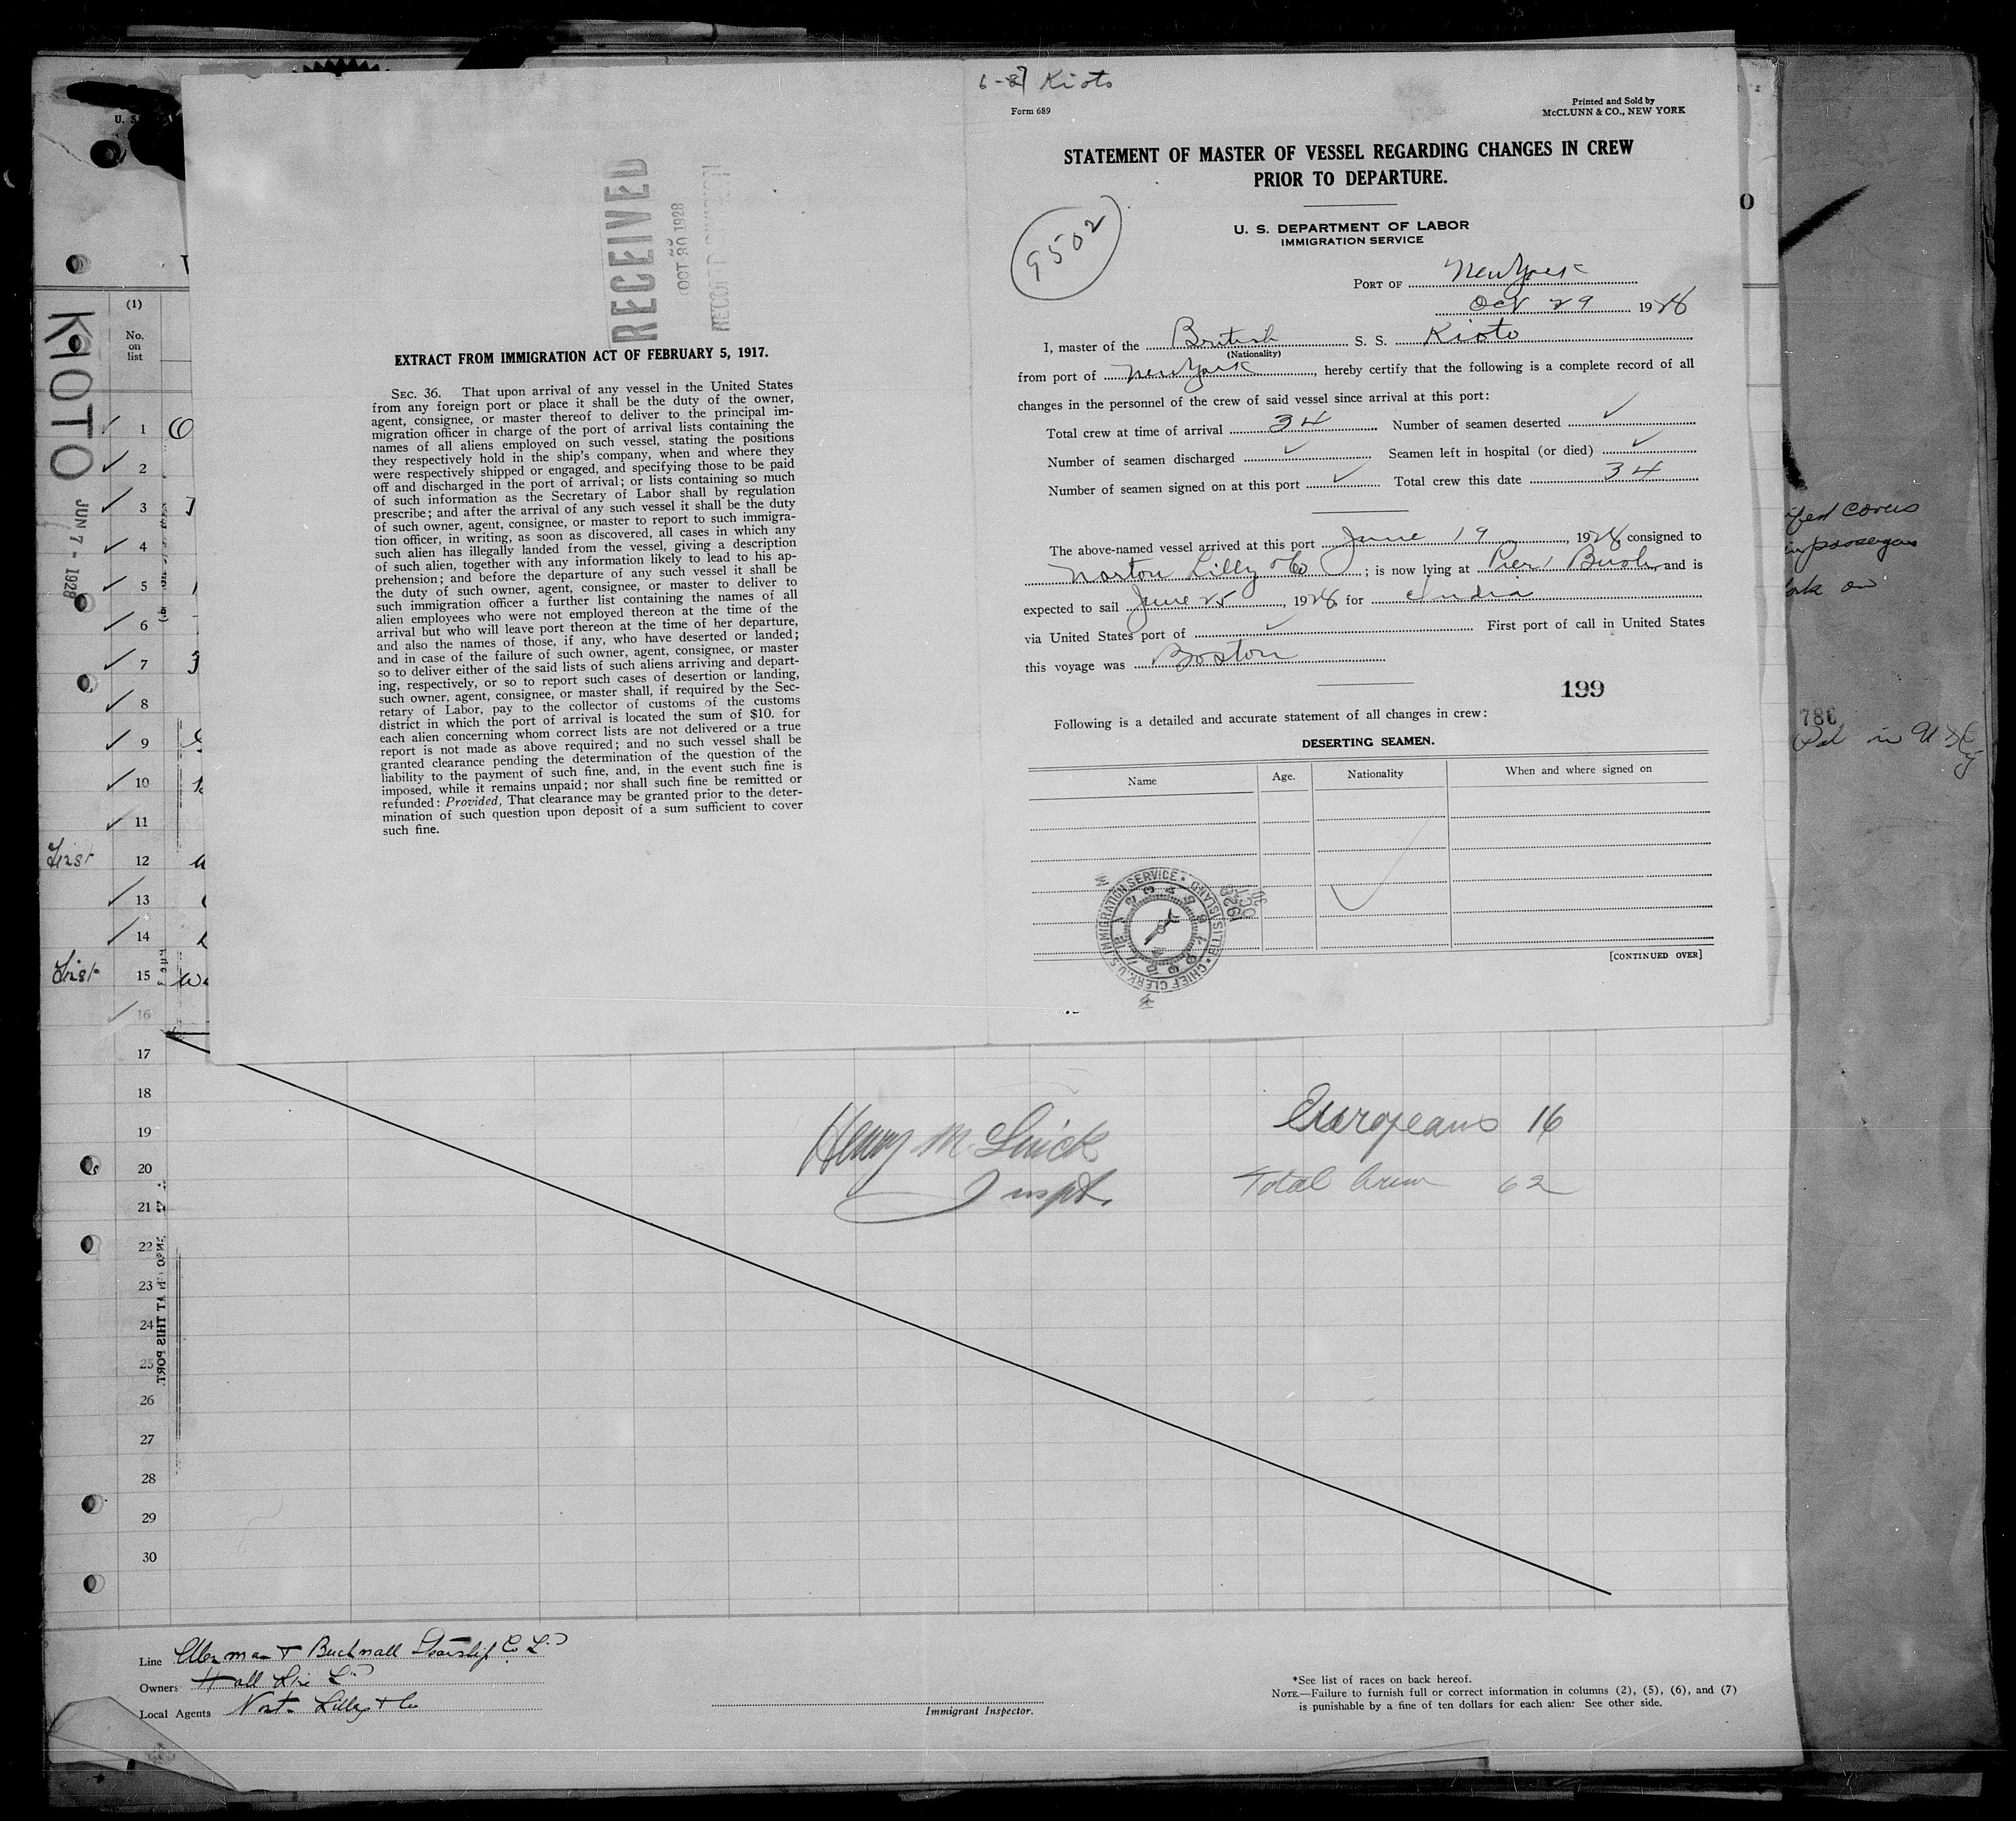 6-7 Kioto
Form 689
Printed and Sold by
McCLUNN & CO., NEW YORK
STATEMENT OF MASTER OF VESSEL REGARDING CHANGES IN CREW
PRIOR TO DEPARTURE.
9502
U. S. DEPARTMENT OF LABOR
IMMIGRATION SERVICE
PORT OF New York
Oct 29 1928
I, master of the British S. S. Kioto
(Nationality)
from port of New York, hereby certify that the following is a complete record of all
changes in the personnel of the crew of said vessel since arrival at this port:
Total crew at time of arrival 34 Number of seamen deserted ✓
Number of seamen discharged ✓ Seamen left in hospital (or died) ✓
Number of seamen signed on at this port ✓ Total crew this date 34
The above-named vessel arrived at this port June 19, 1928, consigned to
Norton Lilly & Co; is now lying at Pier 1 Bush, and is
expected to sail June 25, 1928, for India
via United States port of ✓ First port of call in United States
this voyage was Boston
199
Following is a detailed and accurate statement of all changes in crew:
DESERTING SEAMEN.
Name Age. Nationality When and where signed on
U.S. IMMIGRATION SERVICE • ELLIS ISLAND • CHIEF CLERK
1928 OCT 30
[CONTINUED OVER]
RECEIVED
OCT 30 1928
RECORD DIVISION
EXTRACT FROM IMMIGRATION ACT OF FEBRUARY 5, 1917.
SEC. 36. That upon arrival of any vessel in the United States
from any foreign port or place it shall be the duty of the owner,
agent, consignee, or master thereof to deliver to the principal im-
migration officer in charge of the port of arrival lists containing the
names of all aliens employed on such vessel, stating the positions
they respectively hold in the ship's company, when and where they
were respectively shipped or engaged, and specifying those to be paid
off and discharged in the port of arrival; or lists containing so much
of such information as the Secretary of Labor shall by regulation
prescribe; and after the arrival of any such vessel it shall be the duty
of such owner, agent, consignee, or master to report to such immigra-
tion officer, in writing, as soon as discovered, all cases in which any
such alien has illegally landed from the vessel, giving a description
of such alien, together with any information likely to lead to his ap-
prehension; and before the departure of any such vessel it shall be
the duty of such owner, agent, consignee, or master to deliver to
such immigration officer a further list containing the names of all
alien employees who were not employed thereon at the time of the
arrival but who will leave port thereon at the time of her departure,
and also the names of those, if any, who have deserted or landed;
and in case of the failure of such owner, agent, consignee, or master
so to deliver either of the said lists of such aliens arriving and depart-
ing, respectively, or so to report such cases of desertion or landing,
such owner, agent, consignee, or master shall, if required by the Sec-
retary of Labor, pay to the collector of customs of the customs
district in which the port of arrival is located the sum of $10. for
each alien concerning whom correct lists are not delivered or a true
report is not made as above required; and no such vessel shall be
granted clearance pending the determination of the question of the
liability to the payment of such fine, and, in the event such fine is
imposed, while it remains unpaid; nor shall such fine be remitted or
refunded: Provided, That clearance may be granted prior to the deter-
mination of such question upon deposit of a sum sufficient to cover
such fine.
U. S.
(1)
No.
on
list
KIOTO
JUN 7 - 1928
1
2
3
4
5
6
7
8
9
10
11
First 12
13
14
First 15
16
17
18
19
20
21
22
23
24
25
26
27
28
29
30
AT THIS PORT.
Henry M.
Inspt.
Europeans 16
Total Crew 62
Line Ellerman & Bucknall Steamship Co Ld
Owners Hall Line Ld
Local Agents Nort. Lilly & Co
Immigrant Inspector.
*See list of races on back hereof.
NOTE.—Failure to furnish full or correct information in columns (2), (5), (6), and (7)
is punishable by a fine of ten dollars for each alien. See other side.
covers
passengers
on
786
Pd in